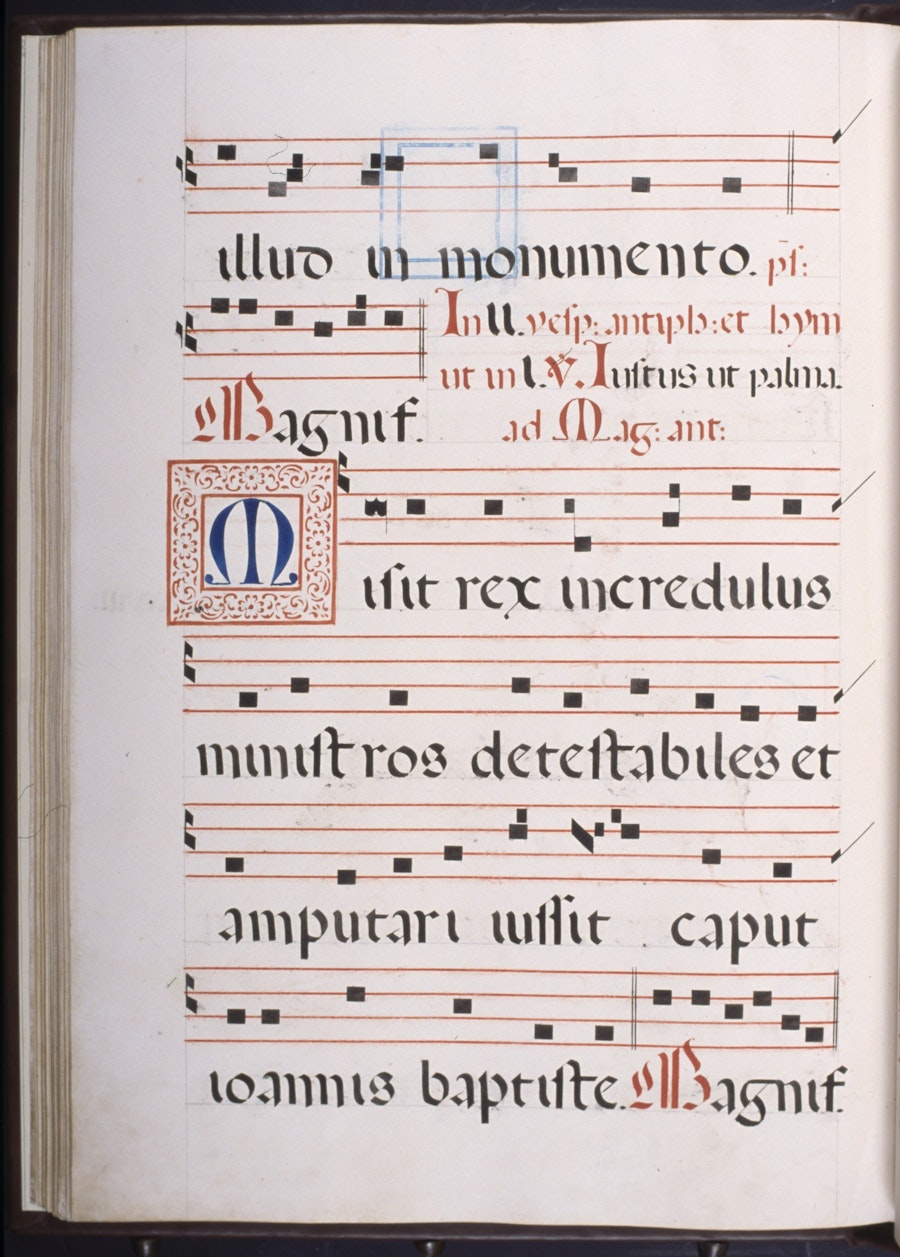 illud in monumento. ps:
In II. vesp: antiph: et hym
ut in I. V. Iustus ut palma.
Magnif. ad Mag: ant:
Misit rex incredulus
ministros detestabiles et
amputari iussit caput
ioannis baptiste. Magnif.